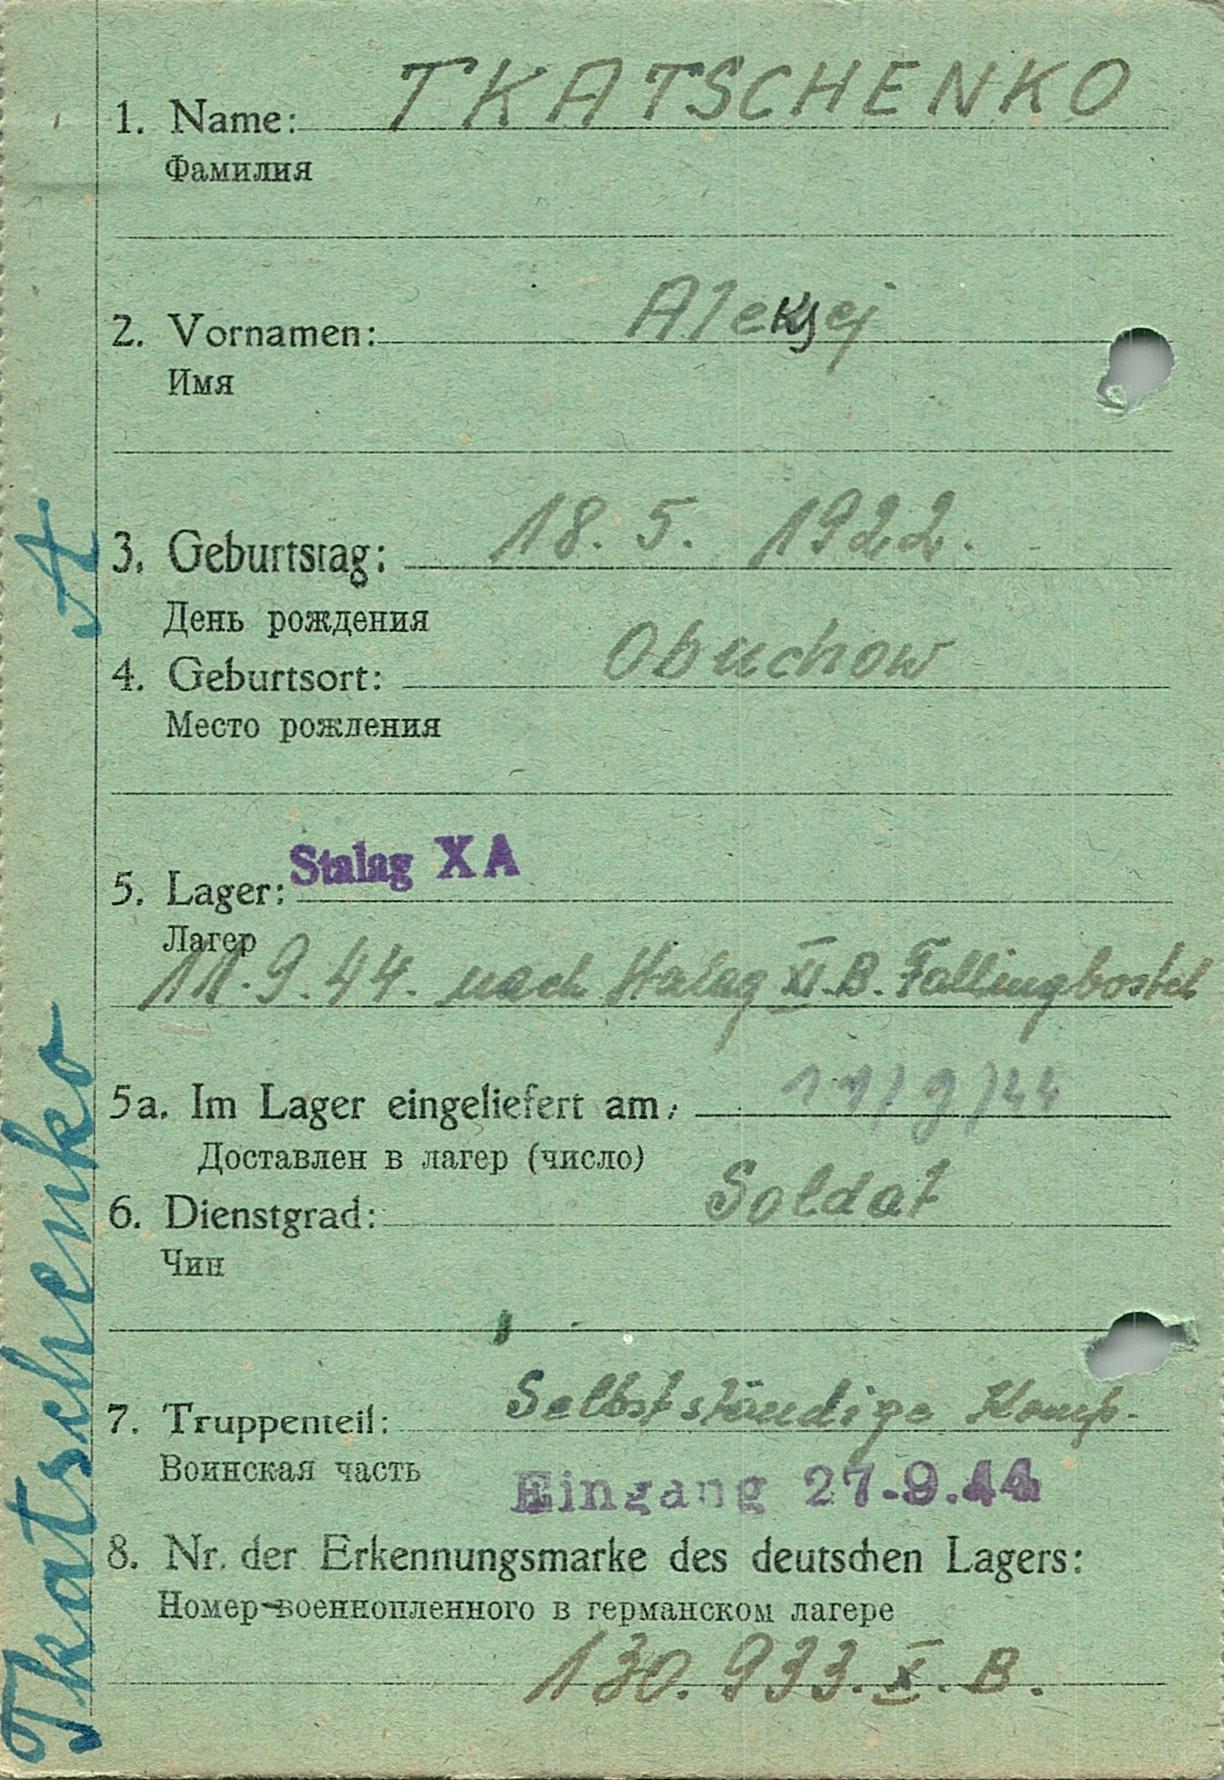 1. Name: TKATSCHENKO
Фамилия
2. Vornamen: Aleksej
Имя
3. Geburtstag: 18. 5. 1922.
День рождения
4. Geburtsort: Obuchow
Место рождения
5. Lager: Stalag XA
Лагер
11.9.44. nach Stalag XI.B. Fallingbostel
5a. Im Lager eingeliefert am: 11/9/44
Доставлен в лагер (число)
6. Dienstgrad: Soldat
Чин
7. Truppenteil: Selbstständige Komp.
Воинская часть
Eingang 27.9.44
8. Nr. der Erkennungsmarke des deutschen Lagers:
Номер военнопленного в германском лагере
130.933.X.B.
Tkatschenko A